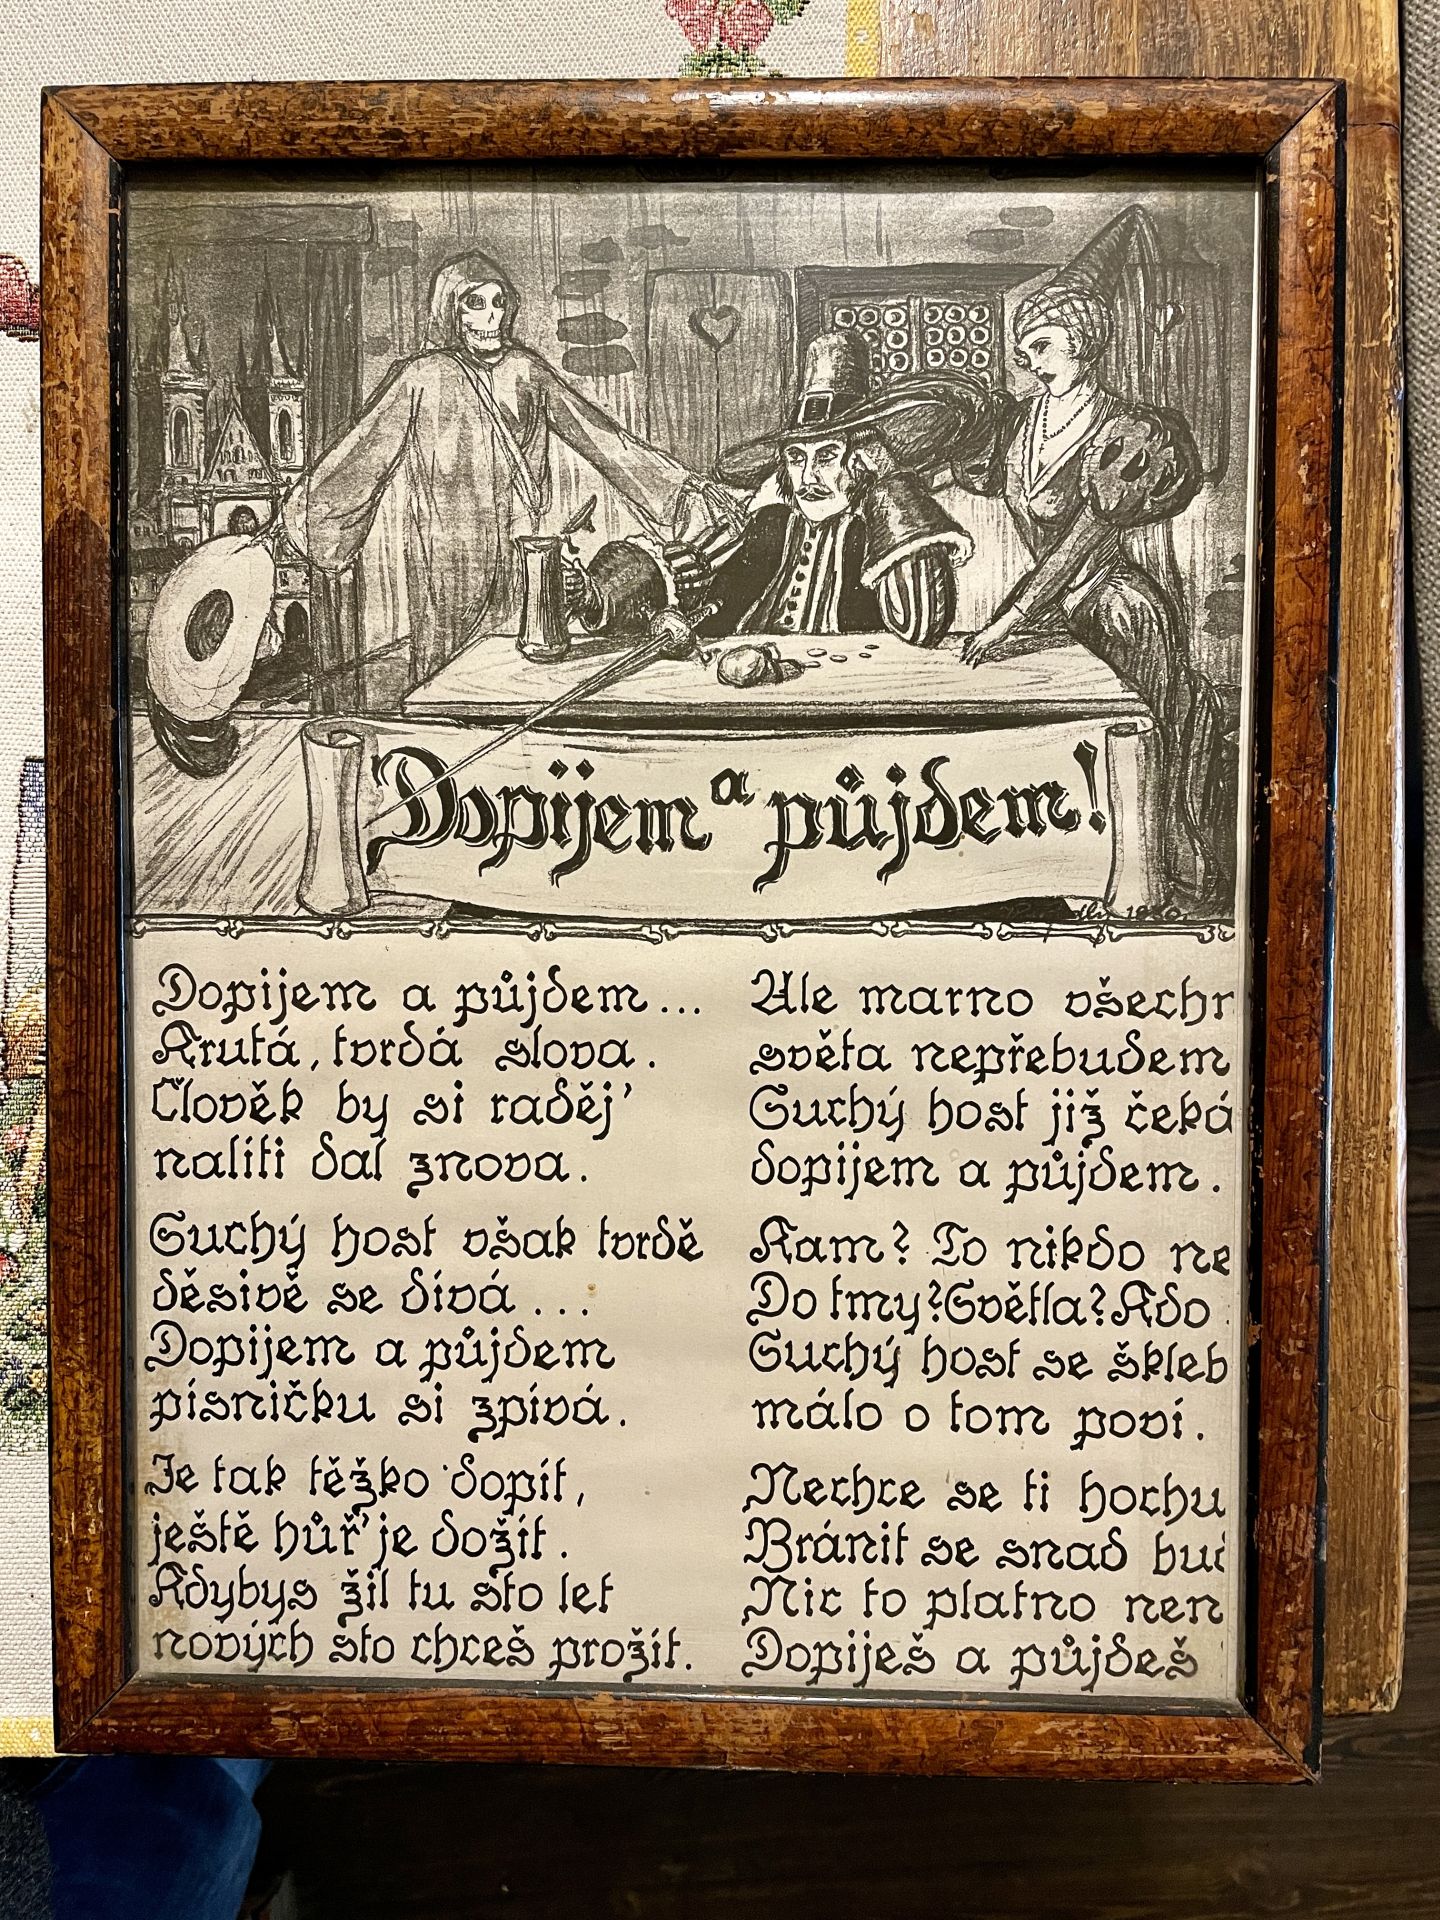 Dopijem a půjdem!
Dopijem a půjdem...
Krutá, tvrdá slova.
Člověk by si raděj'
naliti dal znova.
Suchý host však tvrdě
děsivě se dívá...
Dopijem a půjdem
písničku si zpívá.
Je tak těžko dopít,
ještě hůř' je dožít.
Kdybys žil tu sto let
nových sto chceš prožít.
Ale marno všechn
světa nepřebudem
Suchý host již čeká
dopijem a půjdem.
Kam? To nikdo ne
Do tmy? Světla? Kdo
Suchý host se škleb
málo o tom poví.
Nechce se ti hochu
Bránit se snad bud
Nic to platno nen
Dopiješ a půjdeš